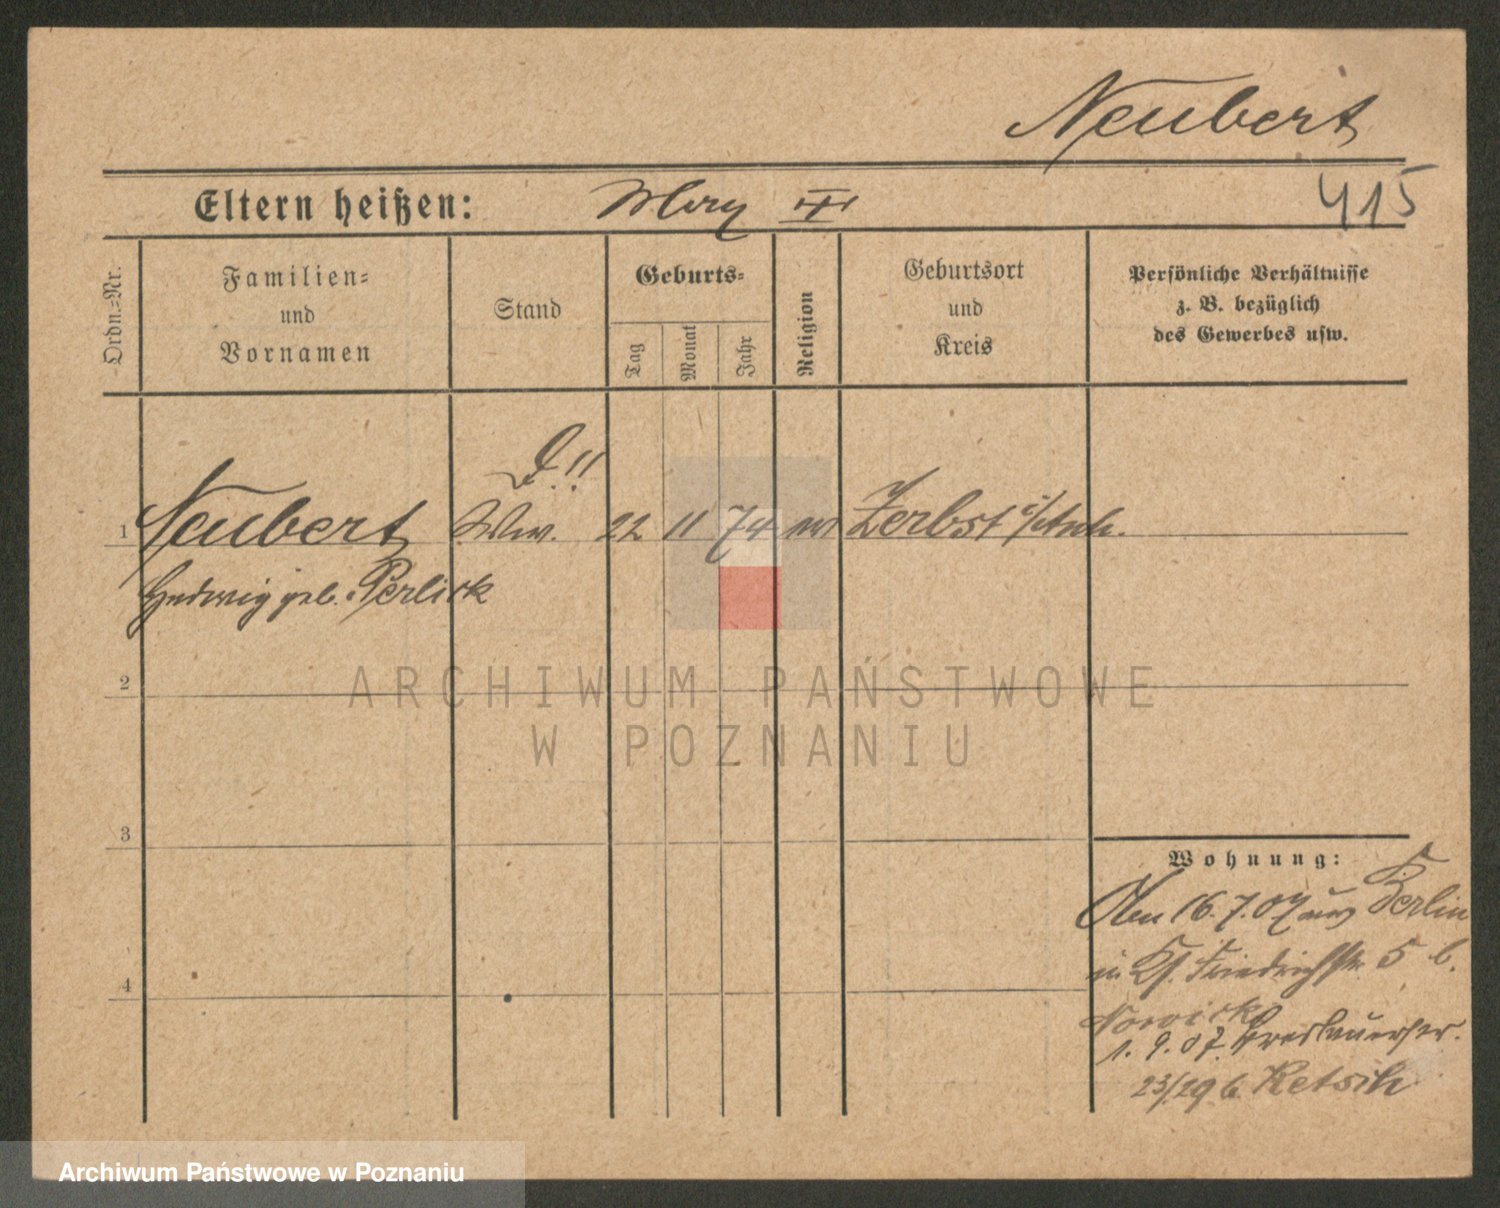 Neubert
Eltern heißen:
415
Ordn.=Nr.
Familien=
und
Vornamen
Stand
Geburts=
Tag
Monat
Jahr
Religion
Geburtsort
und
Kreis
Persönliche Verhältnisse
z. B. bezüglich
des Gewerbes usw.
1
Neubert
Ww.
22
11
74
Zerbst i/Anh.
Hedwig geb. Perlick
2
ARCHIWUM PAŃSTWOWE
W POZNANIU
3
Wohnung:
16.7.07 aus Berlin
Friedrichstr. 5 b.
4
1.9.07. Breslauerstr.
23/29 b.
Archiwum Państwowe w Poznaniu